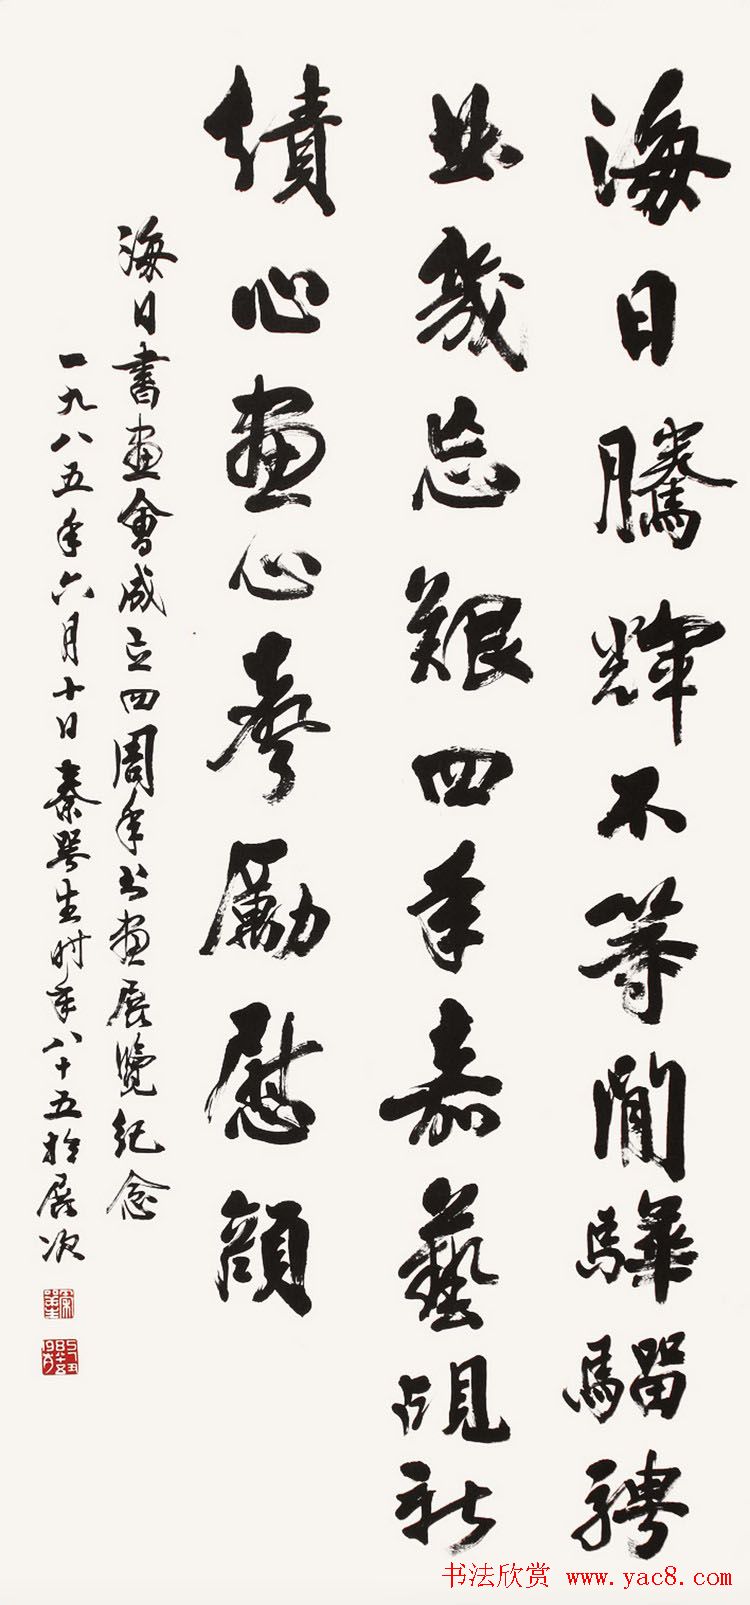 海日騰輝不等閒驊騮騁
並幾忘艱四年嘉藝覘新
績心畫心聲勵慰顏
海日書畫會成立四周年书畫展覽紀念
一九八五年六月十日秦咢生时年八十五於展次
书法欣赏 www.yac8.com